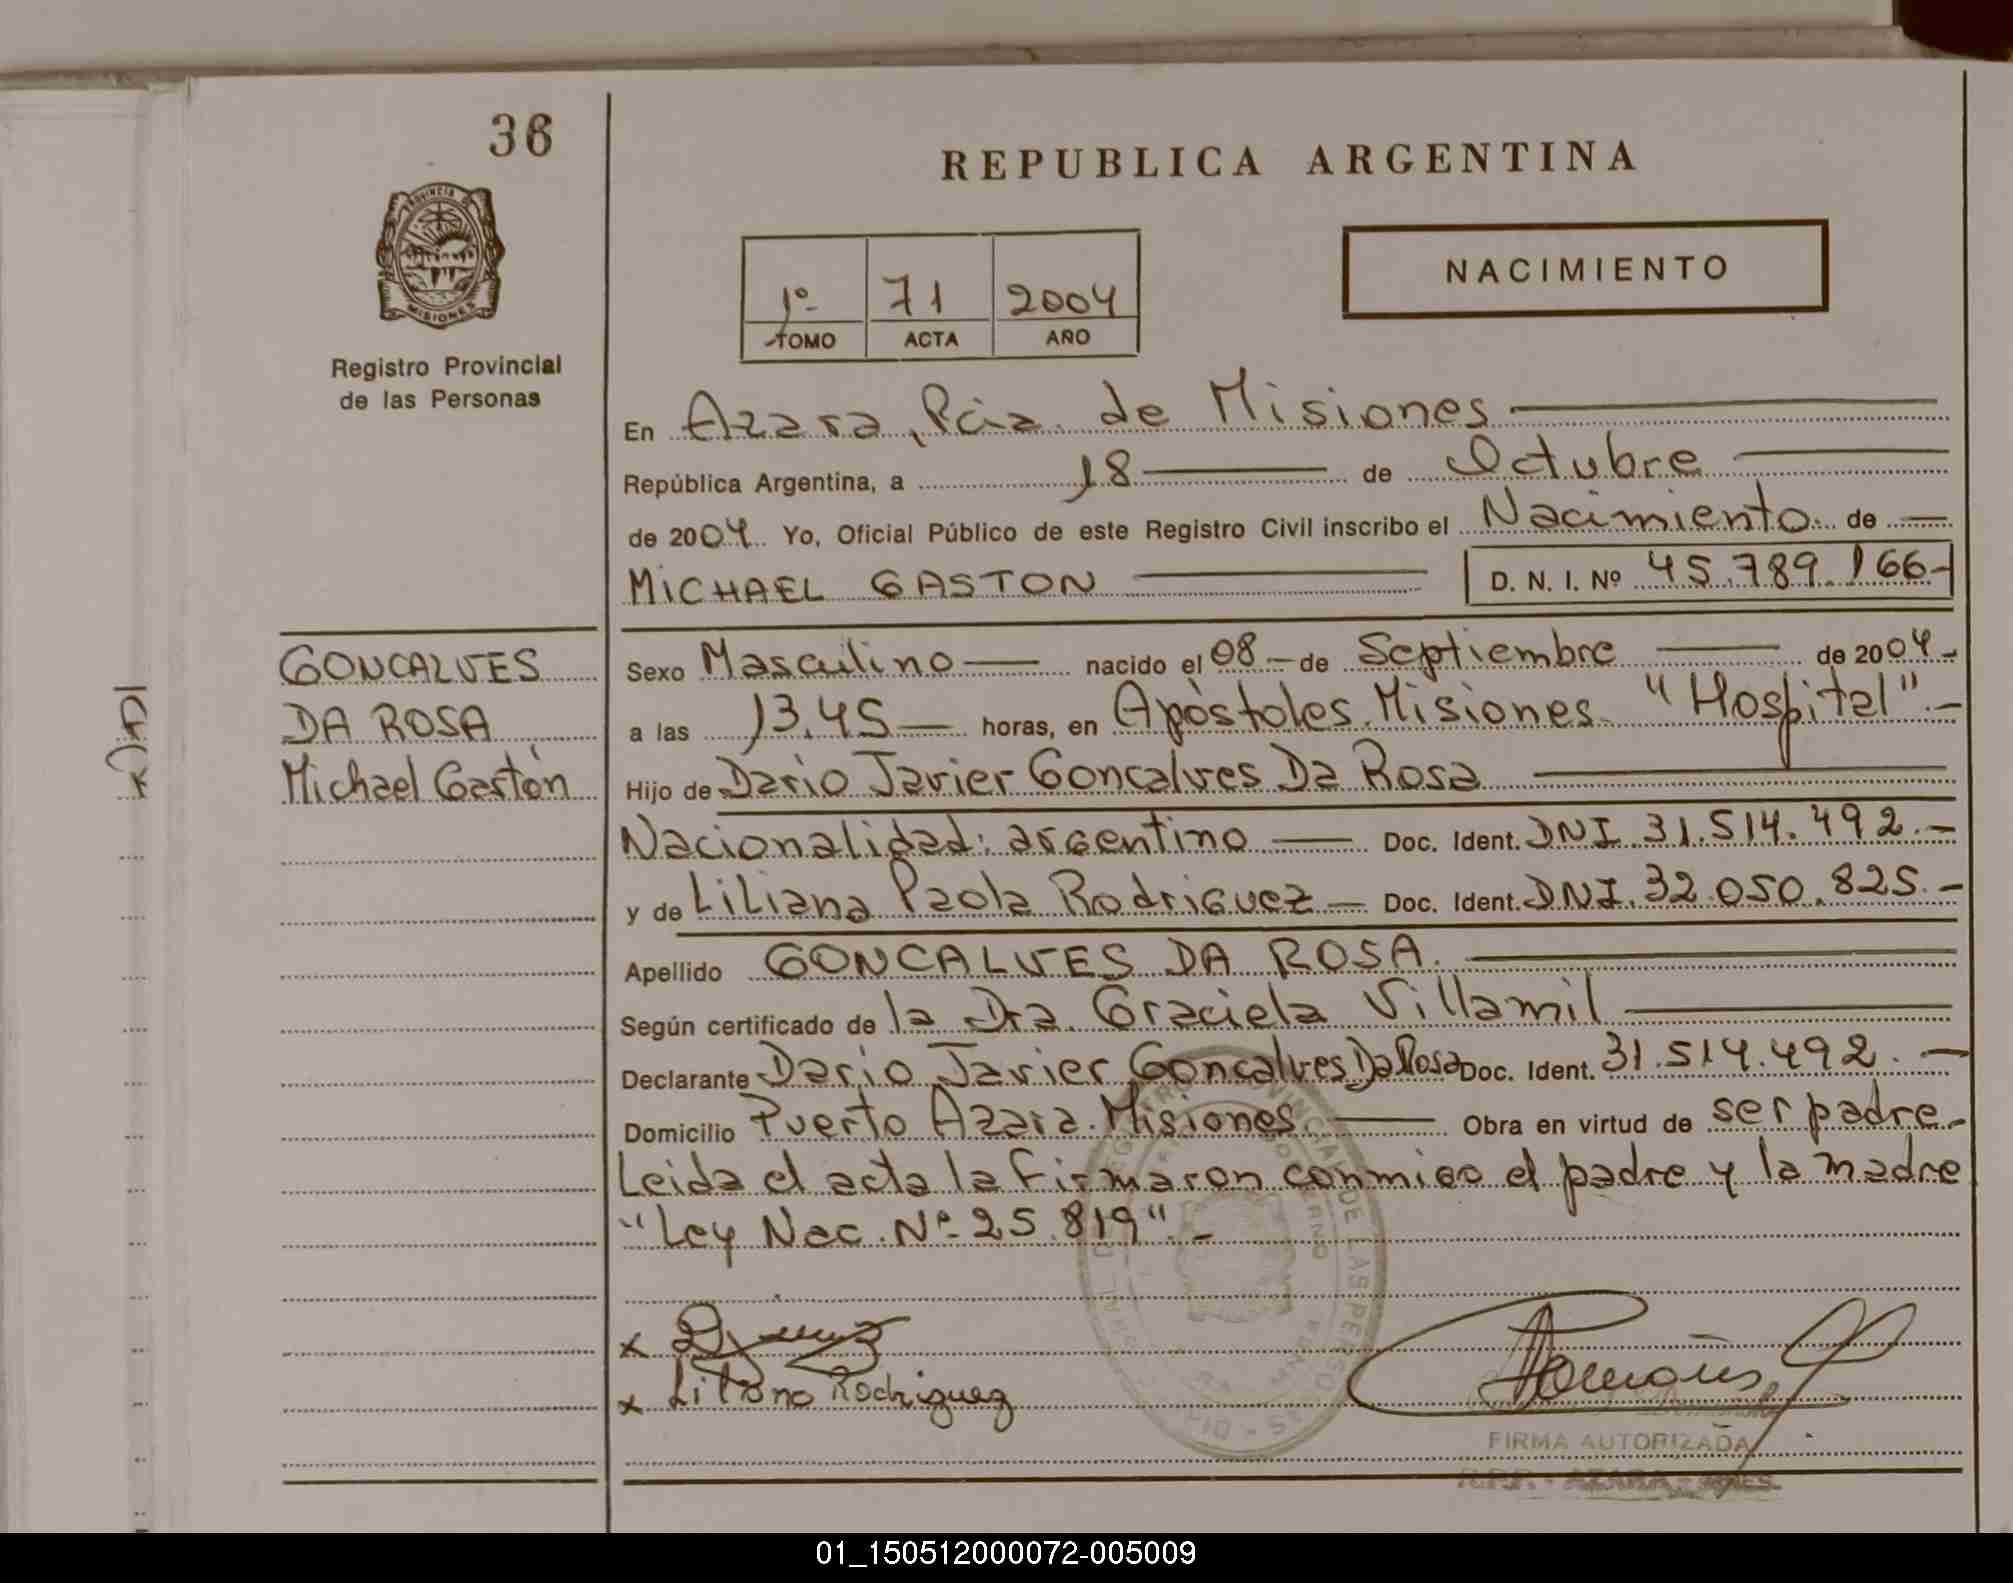 36
REPUBLICA ARGENTINA
PROVINCIA DE
MISIONES
NACIMIENTO
1º 71 2004
TOMO ACTA AÑO
Registro Provincial
de las Personas
En Azara, Pcia. de Misiones
República Argentina, a 18 de Octubre
de 2004 Yo, Oficial Público de este Registro Civil inscribo el Nacimiento de
MICHAEL GASTON D. N. I. Nº 45.789.166-
GONCALVES
DA ROSA
Michael Gastón
Sexo Masculino nacido el 08 de Septiembre de 2004-
a las 13.45 horas, en Apóstoles. Misiones "Hospital".-
Hijo de Dario Javier Goncalves Da Rosa
Nacionalidad: argentino Doc. Ident. DNI. 31.514.492.-
y de Liliana Paola Rodriguez Doc. Ident. DNI. 32.050.825.-
Apellido GONCALVES DA ROSA.
Según certificado de la Dra. Graciela Villamil
Declarante Dario Javier Goncalves Da Rosa Doc. Ident. 31.514.492.-
Domicilio Puerto Azara. Misiones Obra en virtud de ser padre.-
Leida el acta la firmaron conmigo el padre y la madre
"Ley Nac. Nº 25.819".-
x
x Liliana Rodriguez
FIRMA AUTORIZADA
01_150512000072-005009